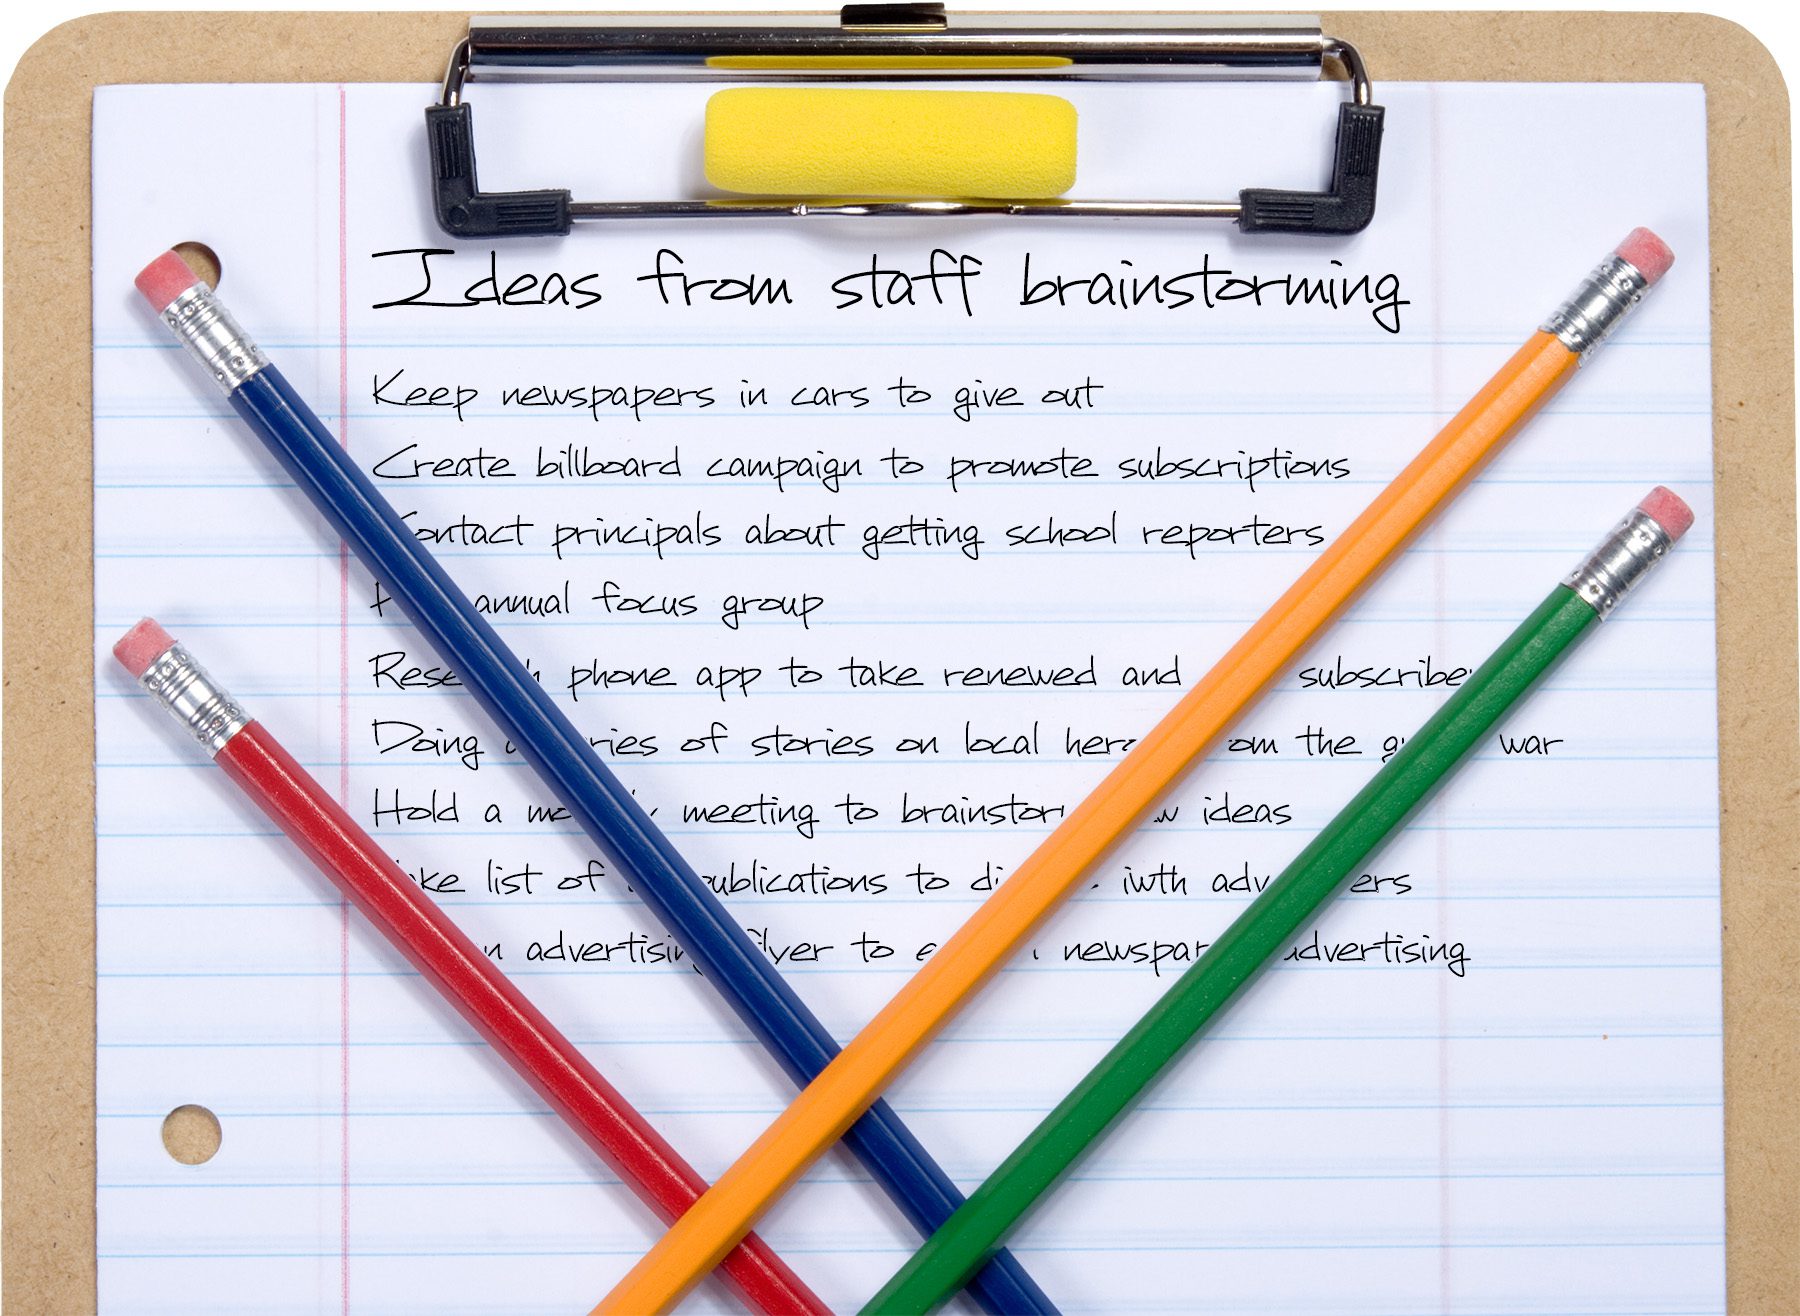 Ideas from staff brainstorming
Keep newspapers in cars to give out
Create billboard campaign to promote subscriptions
Contact principals about getting school reporters
annual focus group
Research phone app to take renewed and subscriber
Doing series of stories on local heroes from the war
Hold a meeting to brainstorm ideas
list of publications to iwth advertisers
advertising flyer to newspaper advertising